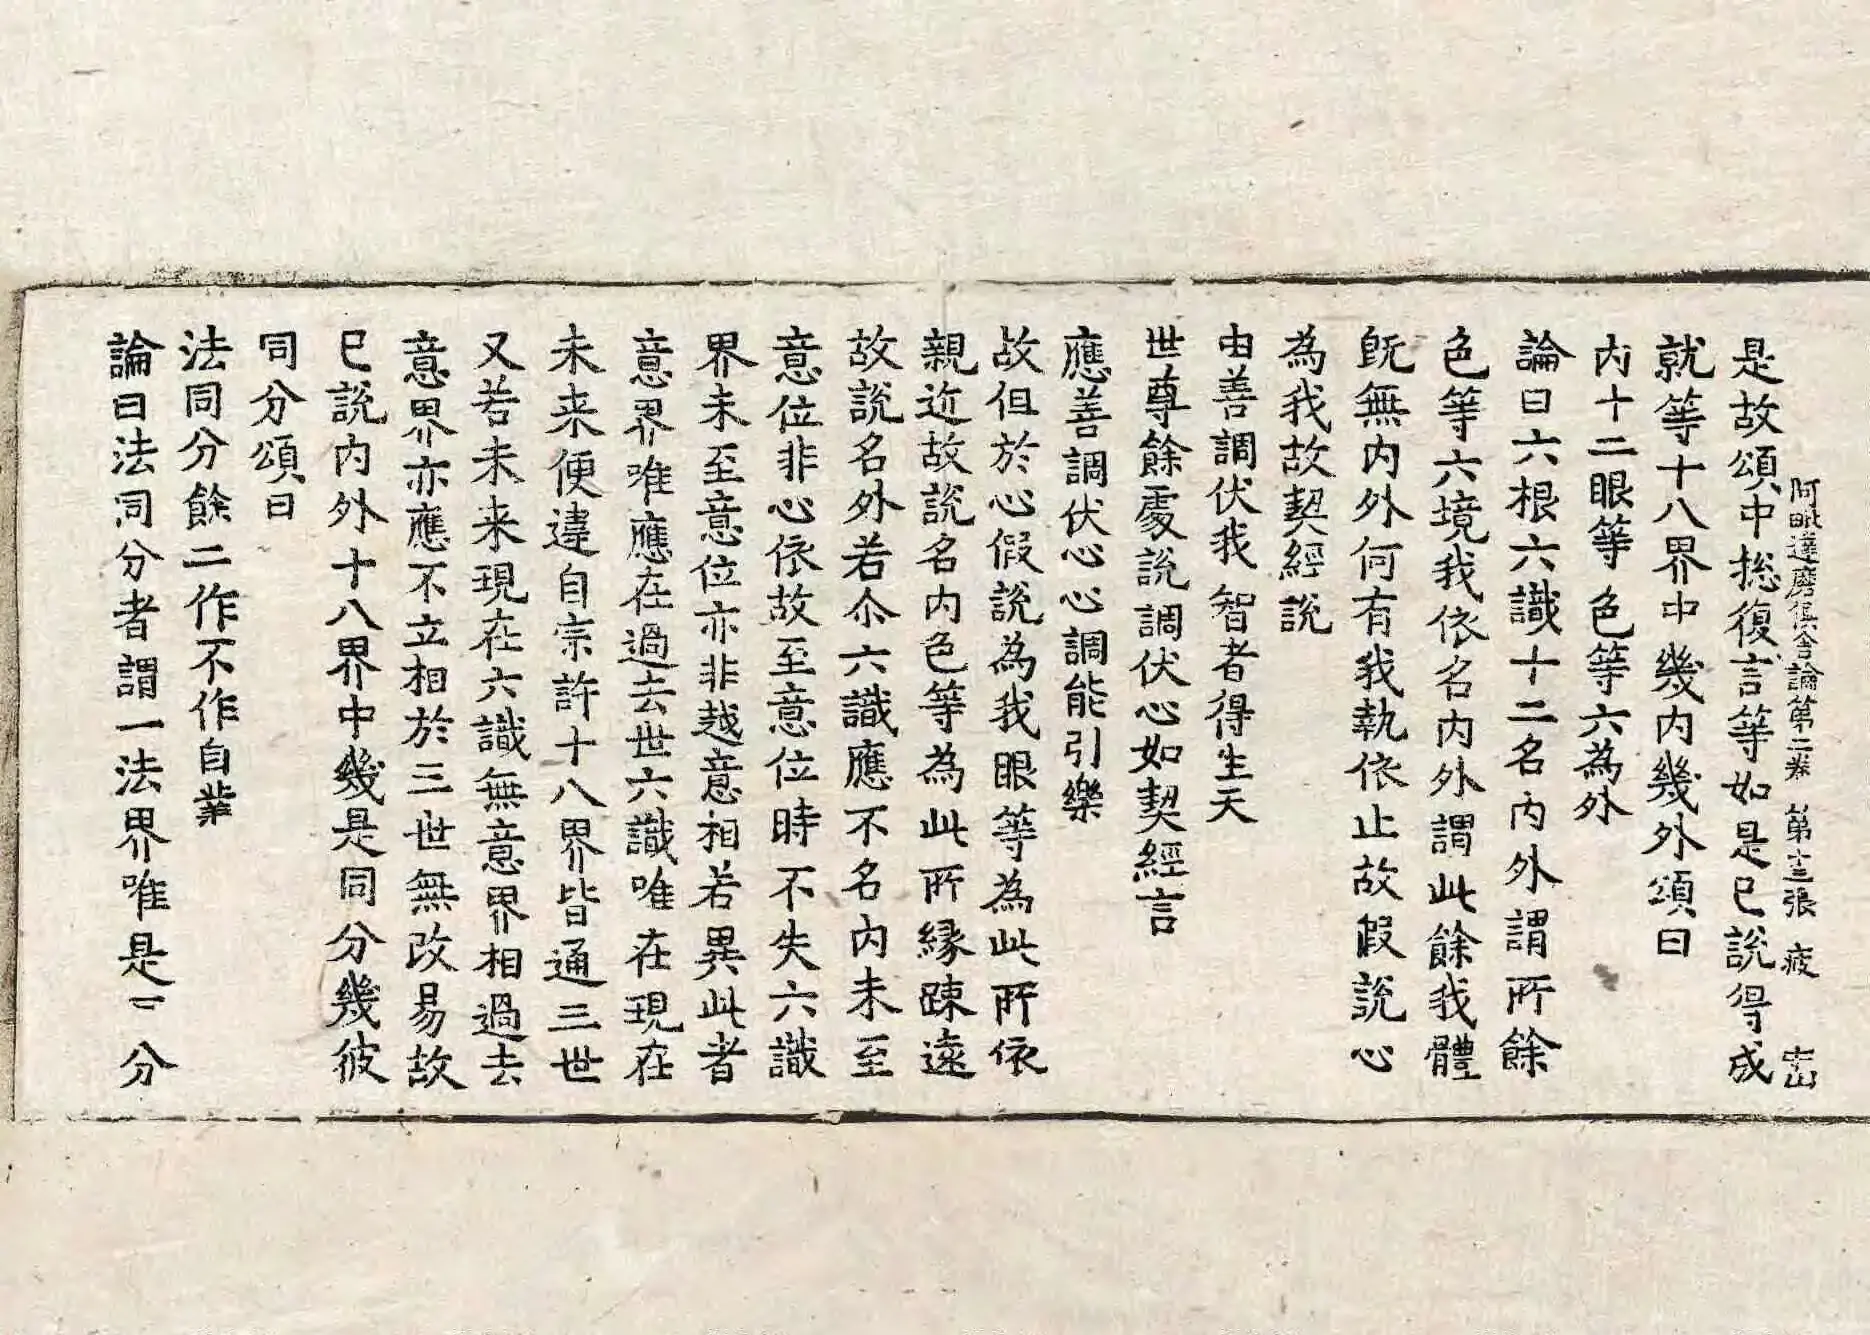 阿毗達磨俱舍論第二卷 第十三張 疲
是故頌中揔復言等如是已說得成
就等十八界中幾内幾外頌曰
内十二眼等 色等六為外
論曰六根六識十二名内外謂所餘
色等六境我依名内外謂此餘我體
旣無内外何有我執依止故假說心
為我故契經說
由善調伏我 智者得生天
世尊餘處說調伏心如契經言
應善調伏心 心調能引樂
故但於心假說為我眼等為此所依
親近故說名内色等為此所緣踈遠
故說名外若尒六識應不名内未至
意位非心依故至意位時不失六識
界未至意位亦非越意相若異此者
意界唯應在過去世六識唯在現在
未来便違自宗許十八界皆通三世
又若未来現在六識無意界相過去
意界亦應不立相於三世無改易故
已說内外十八界中幾是同分幾彼
同分頌曰
法同分餘二 作不作自業
論曰法同分者謂一法界唯是 分